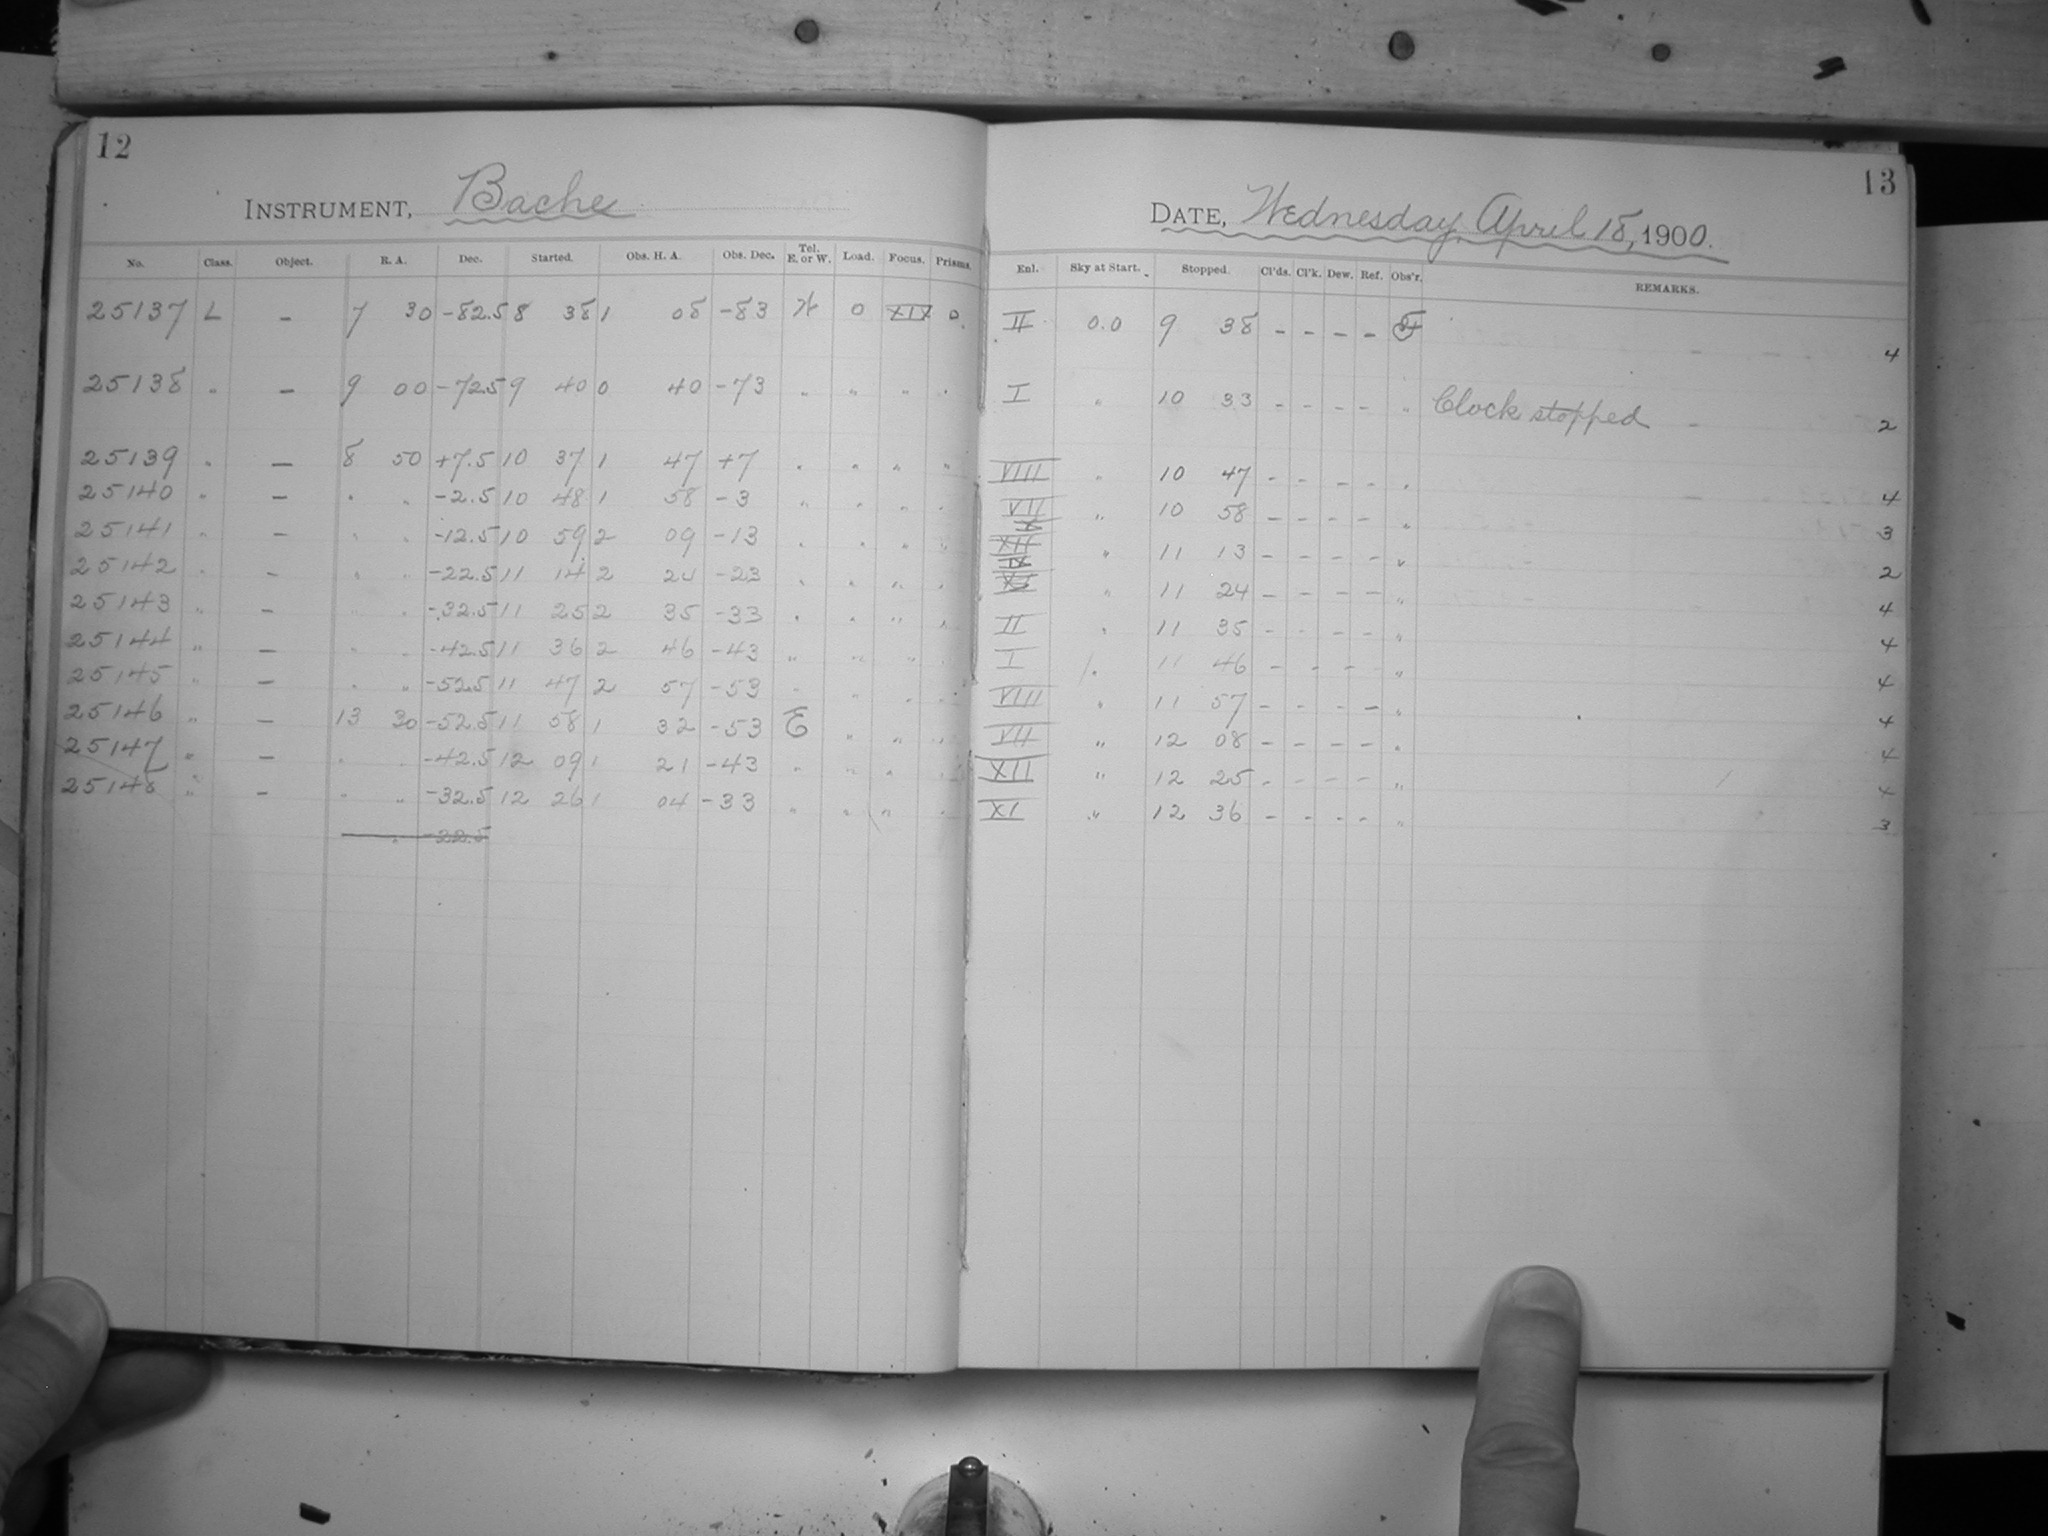 12
INSTRUMENT, Bache
No. Class. Object. R. A. Dec. Started. Obs. H. A. Obs. Dec. Tel. E. or W. Load. Focus. Prisms.
25137 L – 7 30 -82.5 8 38 1 08 -83 W 0 XIX 0
25138 " – 9 00 -72.5 9 40 0 40 -73 " " " "
25139 " – 8 50 +7.5 10 37 1 47 +7 " " " "
25140 " – " " -2.5 10 48 1 58 -3 " " " "
25141 " – " " -12.5 10 59 2 09 -13 " " " "
25142 " – " " -22.5 11 14 2 24 -23 " " " "
25143 " – " " -32.5 11 25 2 35 -33 " " " "
25144 " – " " -42.5 11 36 2 46 -43 " " " "
25145 " – " " -52.5 11 47 2 57 -53 " " " "
25146 " – 13 30 -52.5 11 58 1 32 -53 E " " "
25147 " – " " -42.5 12 09 1 21 -43 " " " "
25148 " – " " -32.5 12 26 1 04 -33 " " " "
" -22.5
13
DATE, Wednesday, April 18, 1900.
Enl. Sky at Start. Stopped. Cl'ds. Cl'k. Dew. Ref. Obs'r. REMARKS.
II 0.0 9 38 – – – – 4
I " 10 33 – – – – " Clock stopped 2
VIII " 10 47 – – – – " 4
VII " 10 58 – – – – " 3
XII " 11 13 – – – – " 2
" 11 24 – – – – " 4
II " 11 35 – – – – " 4
I " 11 46 – – – – " 4
VIII " 11 57 – – – – " 4
VII " 12 08 – – – – " 4
XII " 12 25 – – – – " 4
XI " 12 36 – – – – " 3